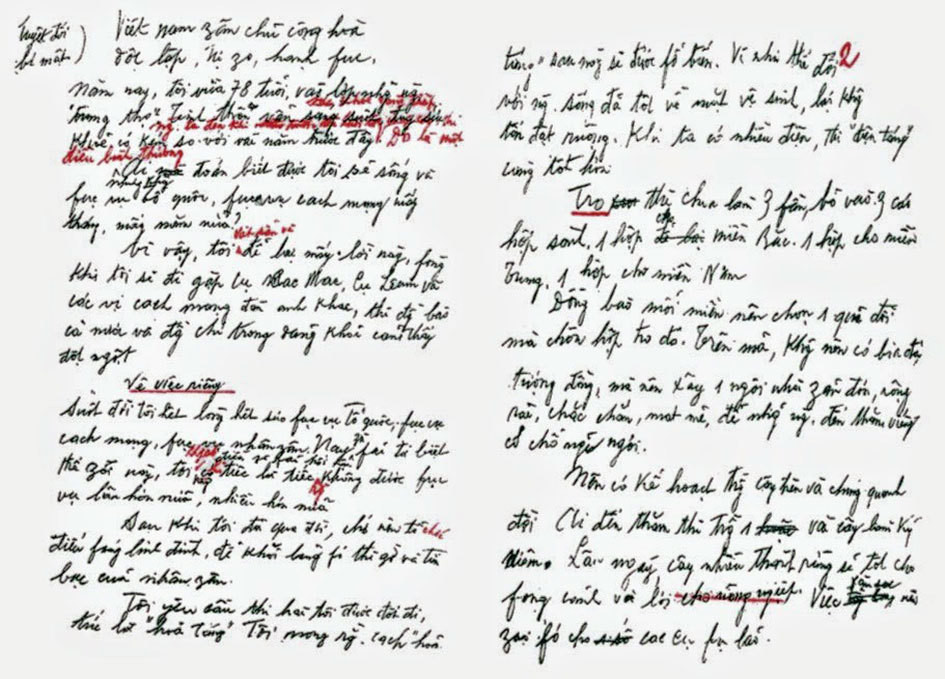 Tuyệt đối
bí mật)
Việt nam zân chủ cộng hoà
độc lập, tự zo, hạnh fúc,
Năm nay, tôi vừa 78 tuổi, vào lớp những ng
"trung thọ". Tinh thần vẫn sáng suốt, tuy sức
khoẻ có kém so với vài năm trước đây. Đó là một
điều bình thường
Ai mà đoán biết được tôi sẽ sống và
fục vụ tổ quốc, fục vụ cách mạng mấy
tháng, mấy năm nữa?
Vì vậy, tôi để lại mấy lời này, fòng
khi tôi sẽ đi gặp cụ Các Mác, cụ Lênin và
các vị cách mạng đàn anh khác, thì đồng bào
cả nước và đồng chí trong đảng khỏi cảm thấy
đột ngột
Về việc riêng
Suốt đời tôi hết lòng hết sức fục vụ tổ quốc, fục vụ
cách mạng, fục vụ nhân zân. Nay zù fải từ biệt
thế zới này, tôi không có điều gì fải hối hận, chỉ tiếc là tiếc rằng không được fục
vụ lâu hơn nữa, nhiều hơn nữa
Sau khi tôi đã qua đời, chớ nên tổ chức
điếu fúng linh đình, để khỏi lãng fí thì giờ và tiền
bạc của nhân zân.
Tôi yêu cầu thi hài tôi được đốt đi,
tức là "hoả táng". Tôi mong rằng cách "hoả
2
táng" sau này sẽ được fổ biến. Vì như thế đối
với ng. sống đã tốt về mặt vệ sinh, lại không
tốn đất ruộng. Khi ta có nhiều điện, thì "điện táng"
càng tốt hơn
Tro thì chia làm 3 fần, bỏ vào 3 cái
hộp sành, 1 hộp cho miền Bắc. 1 hộp cho miền
Trung, 1 hộp cho miền Nam
Đồng bào mỗi miền nên chọn 1 quả đồi
mà chôn hộp tro đó. Trên mả, không nên có bia đá
tượng đồng, mà nên xây 1 ngôi nhà zản đơn, rộng
rãi, chắc chắn, mát mẻ, để những ng. đến thăm viếng
có chỗ nghỉ ngơi.
Nên có kế hoạch trồng cây trên và chung quanh
đồi. Ai đến thăm thì trồng 1 vài cây làm kỷ
niệm. Lâu ngày, cây nhiều thành rừng sẽ tốt cho
fong cảnh và lợi cho nông nghiệp. Việc săn sóc nên
zao fó cho các cụ fụ lão.